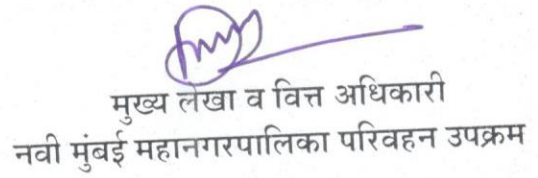 मुख्य लेखा व वित्त अधिकारी
नवी मुंबई महानगरपालिका परिवहन उपक्रम